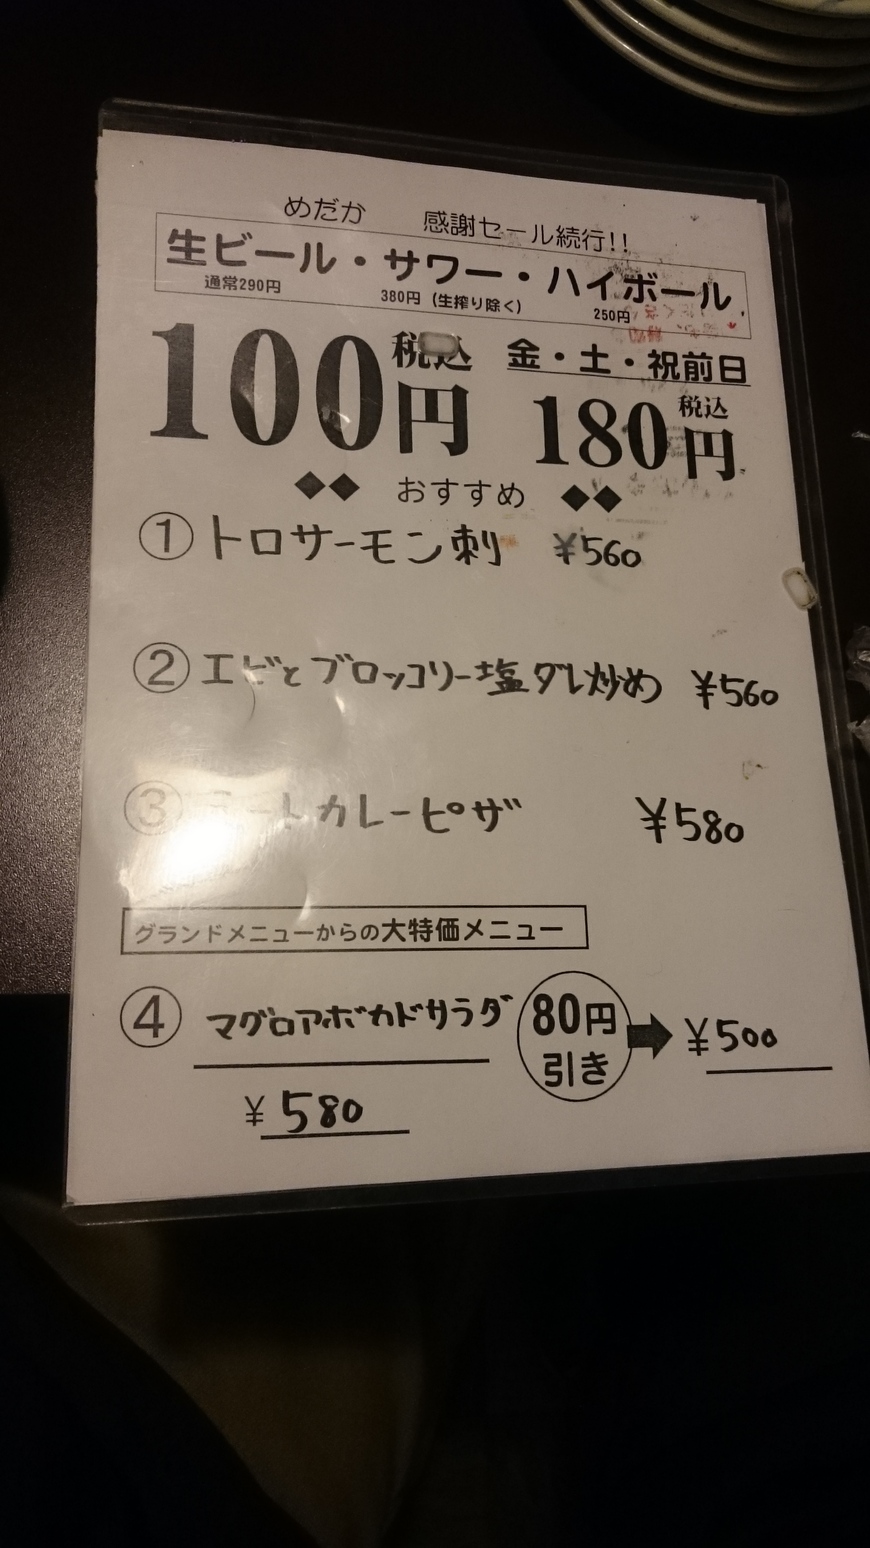 めだか 感謝セール続行!!
生ビール・サワー・ハイボール
通常290円 380円（生搾り除く） 250円
100円 税込 金・土・祝前日 180円 税込
◆◆ おすすめ ◆◆
① トロサーモン刺 ¥560
② エビとブロッコリー塩ダレ炒め ¥560
③ カレーピザ ¥580
グランドメニューからの大特価メニュー
④ マグロアボカドサラダ 80円引き ➡ ¥500
¥580